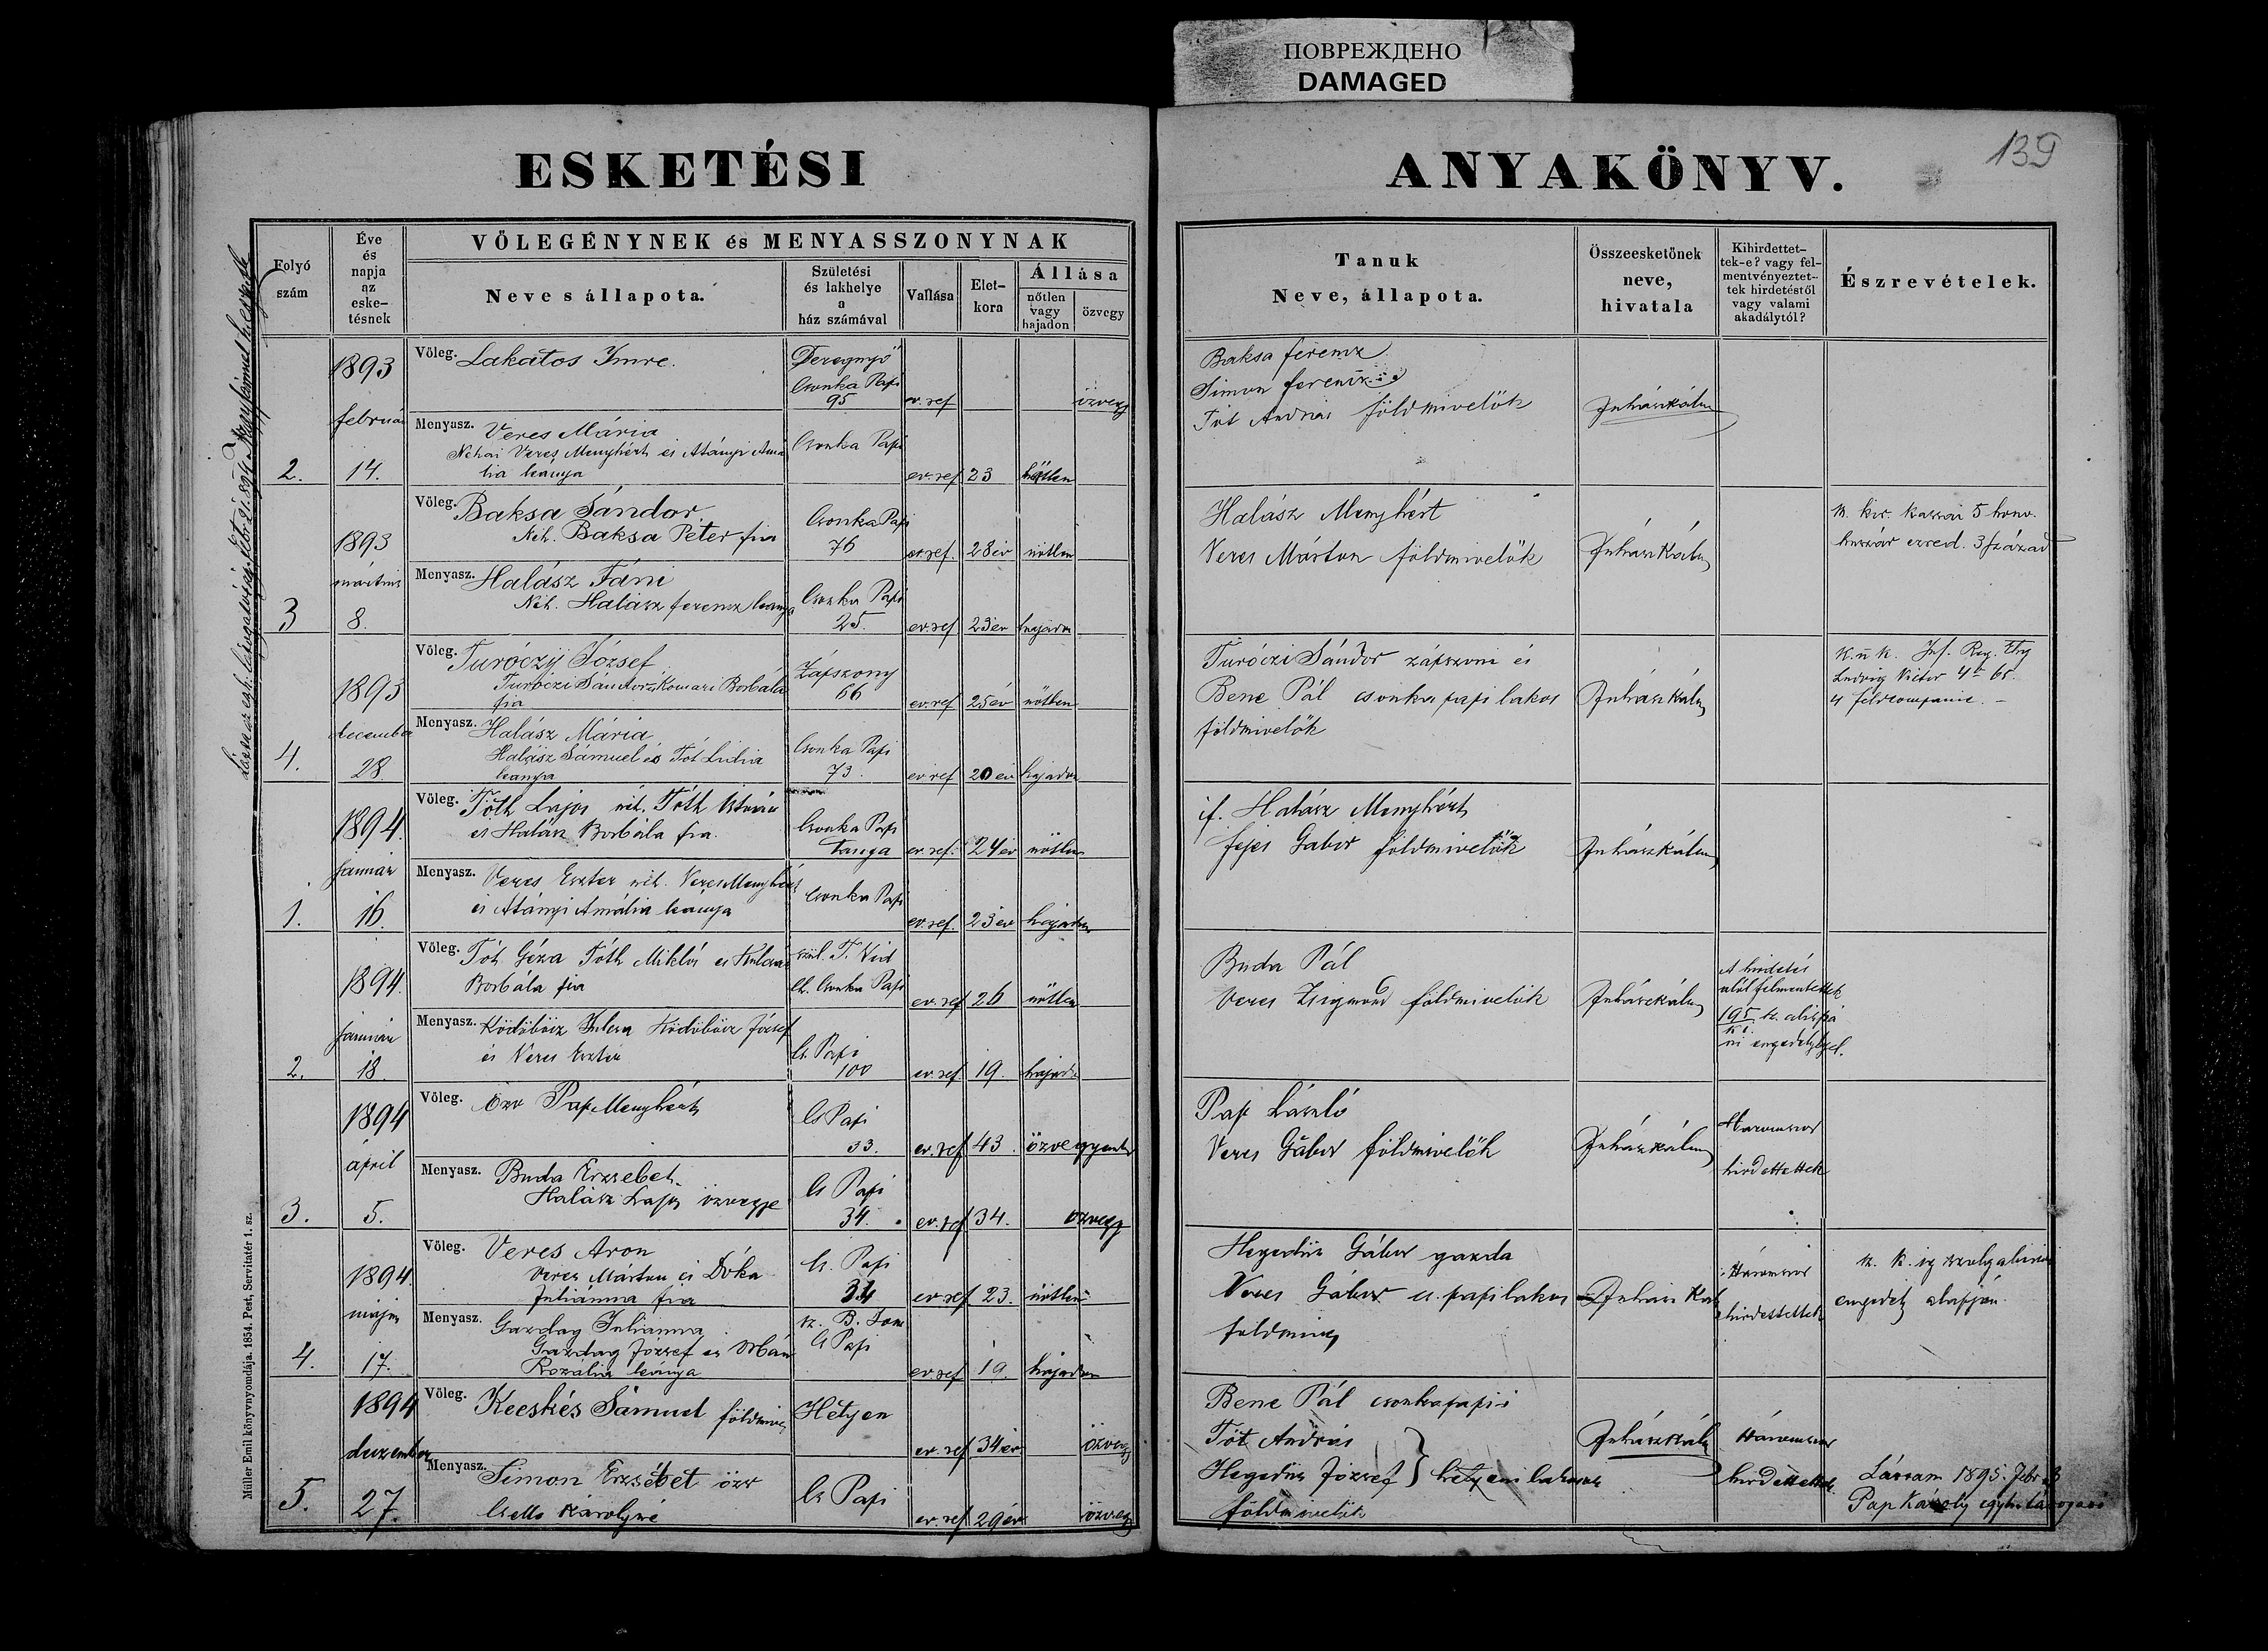 ПОВРЕЖДЕНО
DAMAGED
139
ESKETÉSI
ANYAKÖNYV.
Folyó
szám
Éve
és
napja
az
eske-
tésnek
VŐLEGÉNYNEK és MENYASSZONYNAK
Neve s állapota.
Születési
és lakhelye
a
ház számával
Vallása
Elet-
kora
Állása
nőtlen
vagy
hajadon
özvegy
Tanuk
Neve, állapota.
Összeesketőnek
neve,
hivatala
Kihirdettet-
tek-e? vagy fel-
mentvényeztet-
tek hirdetéstől
vagy valami
akadálytól?
Észrevételek.
2.
1893
február
14.
Vőleg. Lakatos Imre.
Deregnyő
Csonka Papi
95
ev. ref
özvegy
Menyasz. Veres Mária
Néhai Veres Menyhért és Atányi Ama
lia leánya
Csonka Papi
ev. ref 23
Baksa ferencz
Simon ferencz
Tót András földmivelők
Juhász Kálm
3
1893
martius
8.
Vőleg. Baksa Sándor
Néh. Baksa Péter fia
Csonka Papi
76
ev ref. 28 év nőtlen
Menyasz. Halász Fáni
Néh. Halász ferencz leánya
Csonka Papi
25.
ev. ref 23 év hajadon
Halász Menyhért
Veres Márton földmivelők
Juhász Kálm
M. kir. kassai 5 honv.
huszár ezred. 3 század
4.
1893
december
28
Vőleg. Turóczÿ József
Turóczi Sándor s Komari Borbála
fia
Zápszony
66
ev. ref 25 év nőtlen
Menyasz. Halász Mária
Halász Sámuel és Tót Lidia
leánya
Csonka Papi
73.
ev ref 20 év hajadon
Turóczi Sándor zápszoni és
Bene Pál csonka papi lakos
földmivelők
Juhász Kálm
K. u K. Inf. Reg.
Ludvig Victor 65.
4 feldcompanie. -
1.
1894.
január
16.
Vőleg. Tóth Lajos néh. Tóth István
és Halász Borbála fia.
Csonka Papi
Tanya
ev. ref. 24 év nőtlen
Menyasz. Veres Eszter néh. Veres Menyhért
és Atányi Amália leánya
Csonka Papi
ev. ref. 23 év hajadon
if. Halász Menyhért
fejes Gabor földmivelők
Juhász Kálm
2.
1894.
január
18.
Vőleg. Tót Géza Tóth Miklós és
Borbála fia
szül. T. Vid
Csonka Papi
ev. ref 26 nőtlen
Menyasz. Ködöböcz Julcsa Ködöböcz József
és Veres Eszter
Cs. Papi
100
ev. ref 19. hajadon
Buda Pál
Veres Zsigmond földmivelők
Juhász Kálm
A hirdetés
alól felmentettek
195
alispá
ni engedélylyel.
3.
1894
april
5.
Vőleg. özv Pap Menyhért
Cs Papi
33.
ev. ref 43. özvegyember
Menyasz. Buda Erzsebet.
Halász Lajos özvegye
Cs Papi
34.
ev. ref 34. özvegy
Pap László
Veres Gábor földmivelők
Juhász Kálm
Háromszor
hirdettettek
4.
1894.
majus
17.
Vőleg. Veres Aron
Veres Márton és Dóka
Juliánna fia
Cs. Papi
34
ev. ref 23. nőtlen
Menyasz. Gazdag Julianna
Gazdag József es
Rozália leánya
Cs Papi
ev. ref 19. hajadon
Hegedüs Gábor gazda
Veres Gábor cs. papi lakos
földmives
Juhász Kál
Háromszor
hirdettettek
engedély alapján.
5.
1894
december
27.
Vőleg. Kecskés Sámuel földmives
Hetyen
ev. ref 34 év
özvegy
Menyasz. Simon Erzsébet özv
Károlyné
Cs Papi
ev. ref 29 év
özvegy
Bene Pál csonkapapii
Tót András
Hegedüs József } hetyeni lakosok
földmivelők
Juhász Kálm
Háromszor
hirdettettek
Láttam 1895. febr.
Pap Károly
Müller Emil könyvnyomdája. 1854. Pest, Servitatér 1. sz.